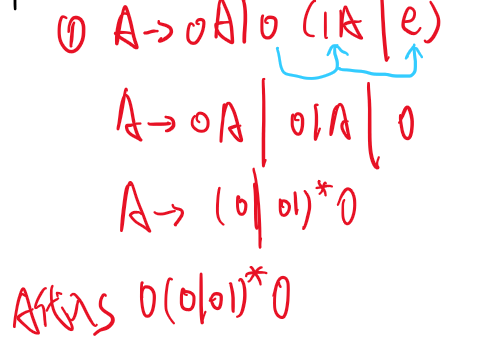 ① A→0A|0(1A|e)
A→0A|01A|0
A→(0|01)*0
A代入S 0(0|01)*0